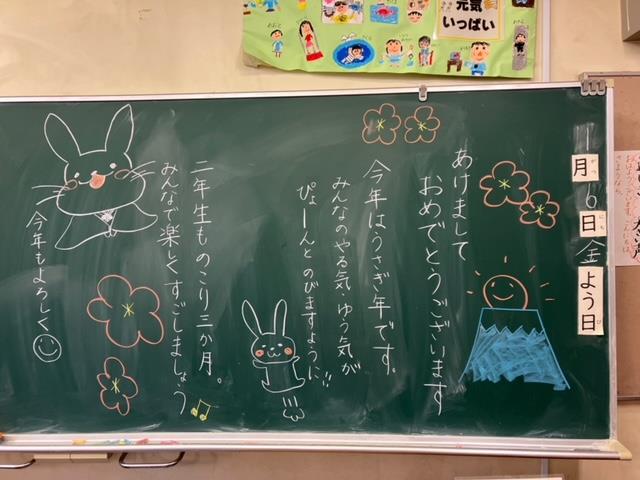 元気
いっぱい
1月6日金よう日
あけまして
おめでとうございます
今年はうさぎ年です。
みんなのやる気・ゆう気が
ぴょーんとのびますように!!
二年生ものこり三か月。
みんなで楽しくすごしましょう♪
今年もよろしく